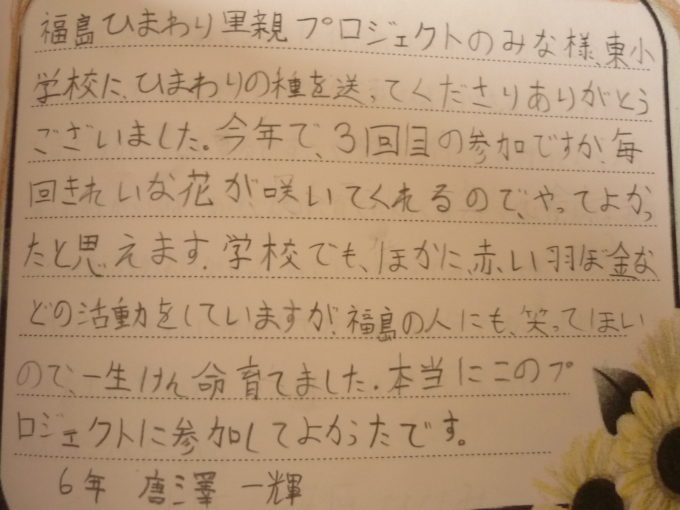 福島ひまわり里親プロジェクトのみな様、東小
学校に、ひまわりの種を送ってくださりありがとう
ございました。今年で、3回目の参加ですが、毎
回きれいな花が咲いてくれるので、やってよかっ
たと思えます。学校でも、ほかに、赤い羽ぼ金な
どの活動をしていますが、福島の人にも、笑ってほしい
ので、一生けん命育てました。本当にこのプ
ロジェクトに参加してよかったです。
6年 唐澤 一輝